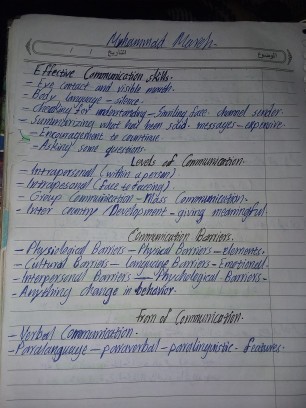 Muhammad
التاريخ
الموضوع
Effective Communication skills.
- Eye contact and visible mouth.
- Body language - silence.
- Checking for understanding - Smiling face channel sender.
- Summarizing what had been said. messages - expensive.
- Encouragement to countinue.
- Asking some questions.
Levels of Communication.
- Intrapersonal (within a person)
- Intrapersonal (face to facing)
- Group Communication - Mass Communication.
- Inter country Development - giving meaningful
Communication Barriers.
- Physiological Barriers - Physical Barriers - elements.
- Cultural Barriers - Language Barriers - Emotional.
- Interpersonal Barriers - Phychological Barriers -
- Anything change in behavior.
From of Communication.
- Verbal Communication.
- Paralanguage - paraverbal - paralinguistic - features.